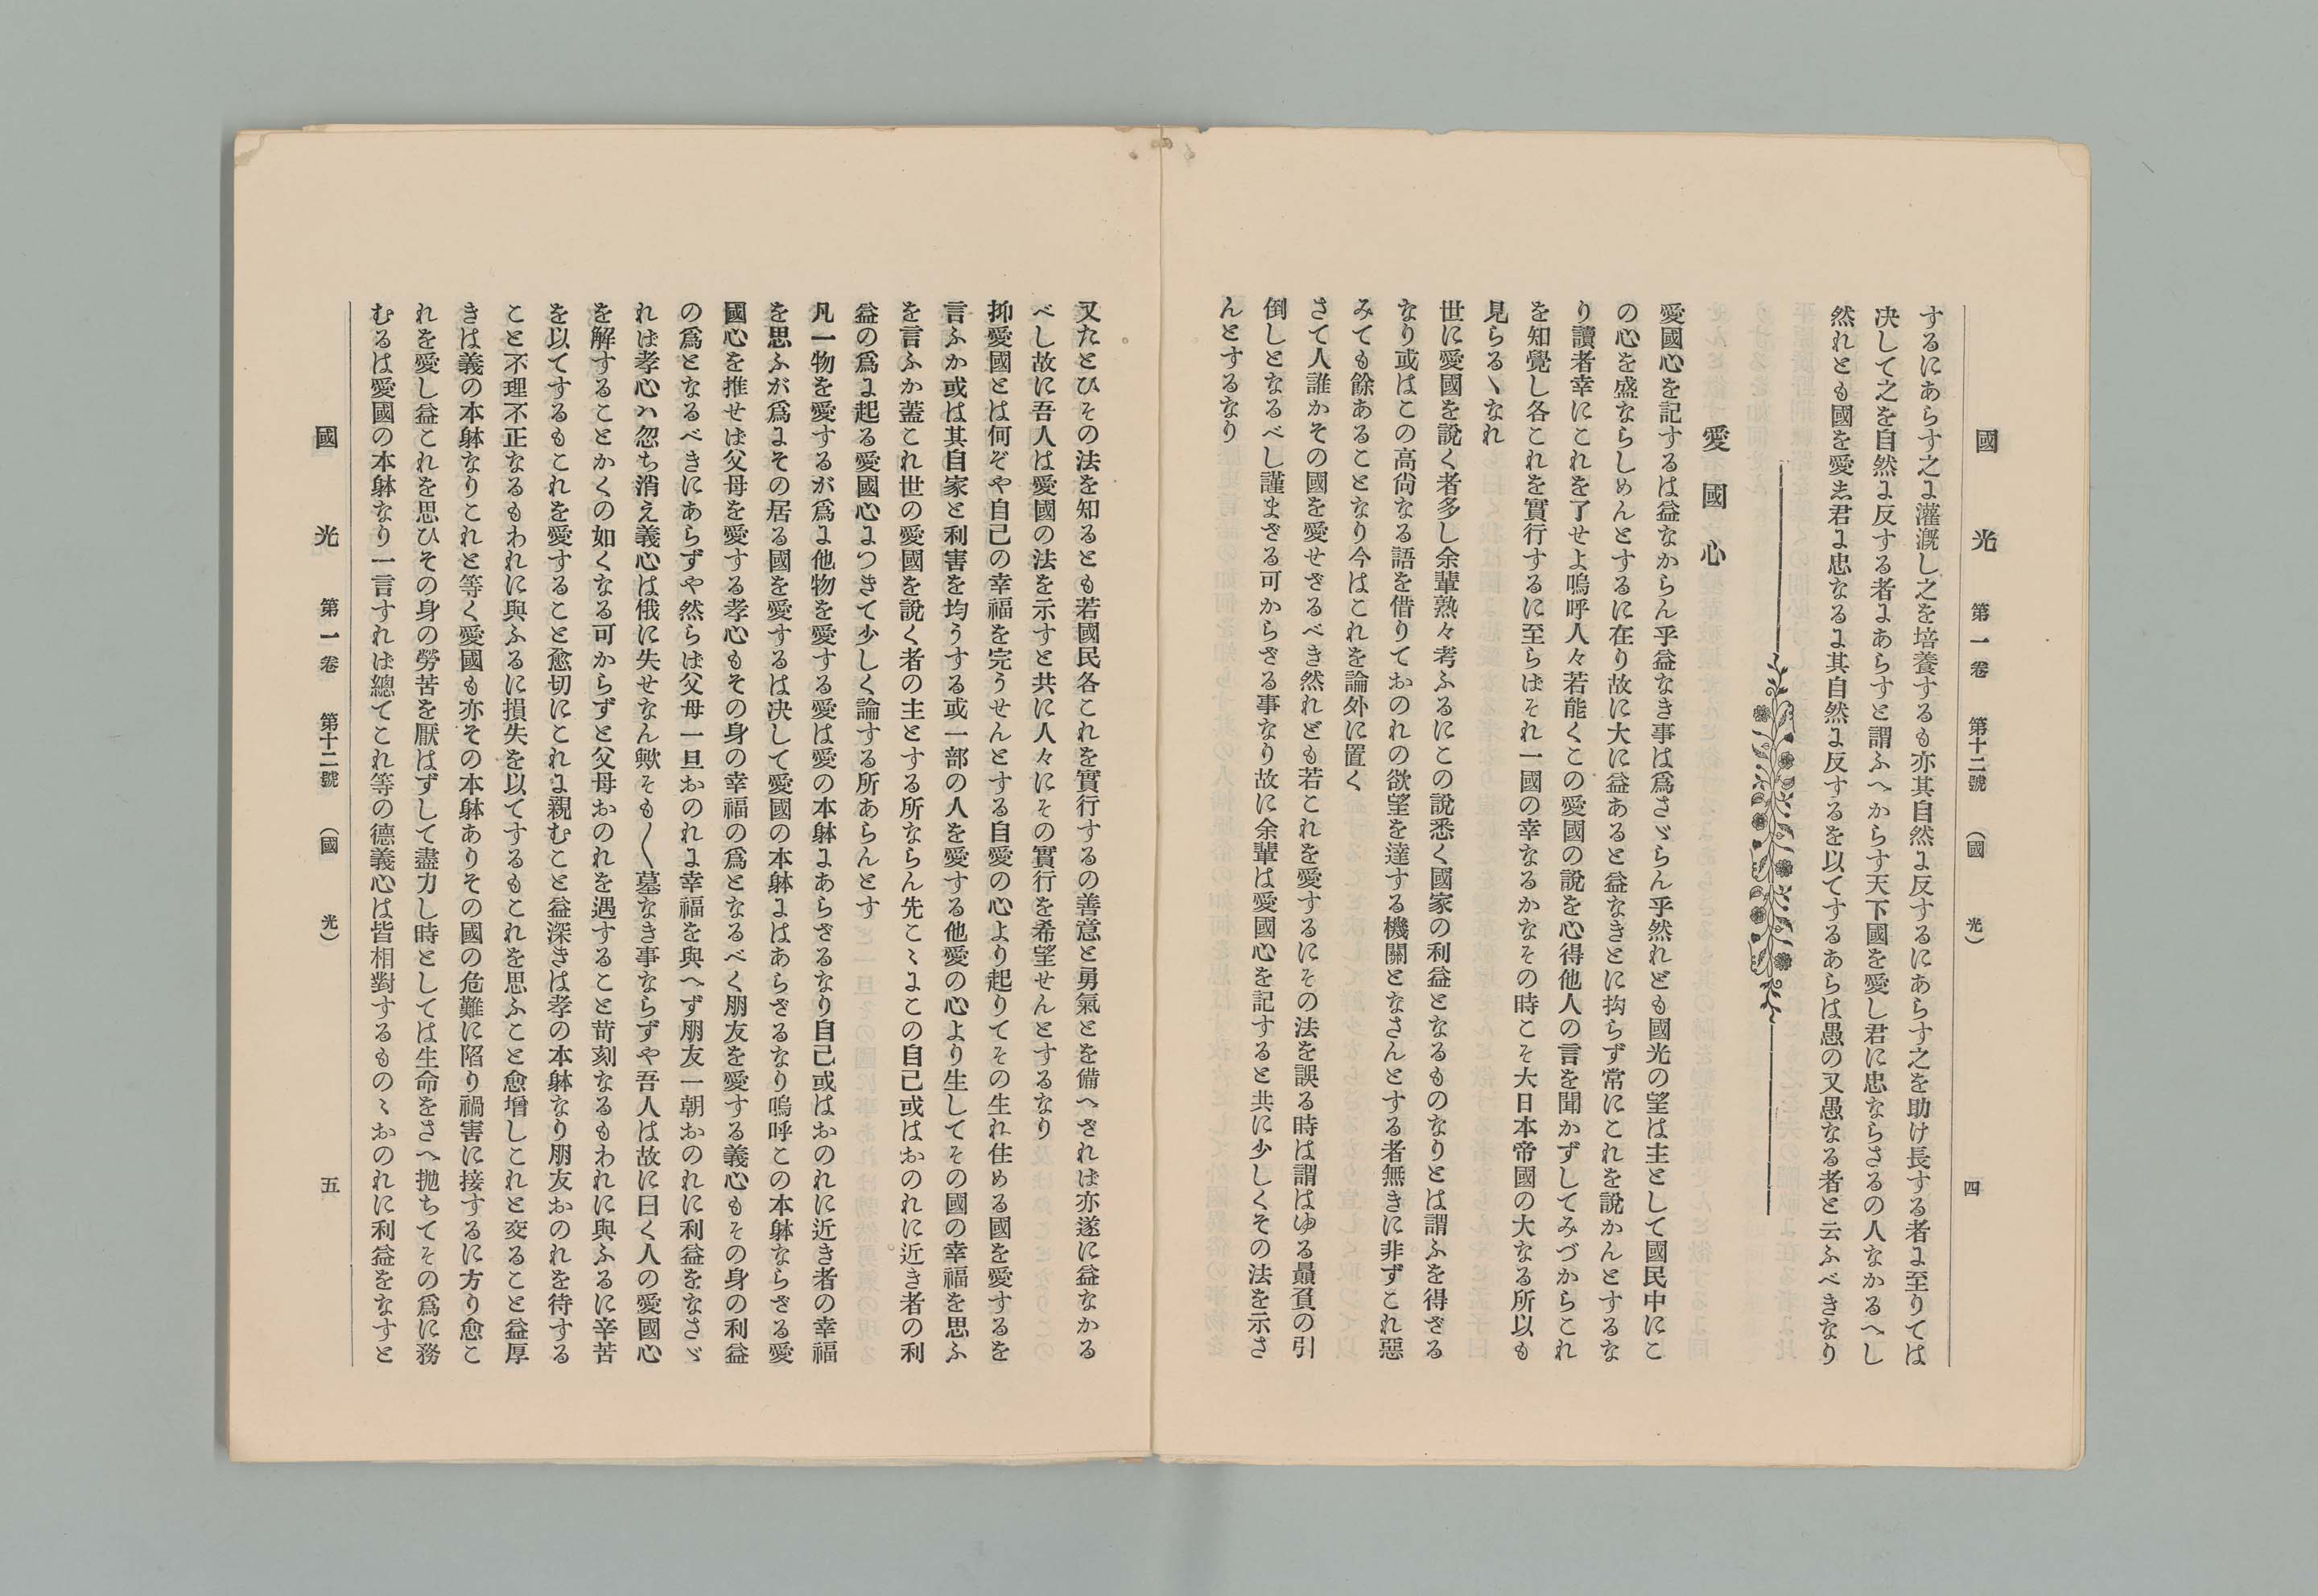 國光 第一卷 第十二號 (國光) 四
するにあらす之よ灌漑し之を培養するも亦其自然よ反するにあらす之を助け長する者よ至りては
決して之を自然よ反する者よあらすと謂ふへからす天下國を愛し君に忠ならさるの人なかるへし
然れとも國を愛し君よ忠なるよ其自然よ反するを以てするあらは愚の又愚なる者と云ふべきなり
愛國心
愛國心を記するは益なからん乎益なき事は爲さゞらん乎然れども國光の望は主として國民中にこ
の心を盛ならしめんとするに在り故に大に益あると益なきとに拘らず常にこれを說かんとするな
り讀者幸にこれを了せよ嗚呼人々若能くこの愛國の說を心得他人の言を聞かずしてみづからこれ
を知覺し各これを實行するに至らばそれ一國の幸なるかなその時こそ大日本帝國の大なる所以も
見らるゝなれ
世に愛國を說く者多し余輩熟々考ふるにこの說悉く國家の利益となるものなりとは謂ふを得ざる
なり或はこの高尙なる語を借りておのれの欲望を達する機關となさんとする者無きに非ずこれ惡
みても餘あることなり今はこれを論外に置く
さて人誰かその國を愛せざるべき然れども若これを愛するにその法を誤る時は謂はゆる贔負の引
倒しとなるべし謹まざる可からざる事なり故に余輩は愛國心を記すると共に少しくその法を示さ
んとするなり
又たとひその法を知るとも若國民各これを實行するの善意と勇氣とを備へされは亦遂に益なかる
べし故に吾人は愛國の法を示すと共に人々にその實行を希望せんとするなり
抑愛國とは何ぞや自己の幸福を完うせんとする自愛の心より起りてその生れ住める國を愛するを
言ふか或は其自家と利害を均うする或一部の人を愛する他愛の心より生してその國の幸福を思ふ
を言ふか蓋これ世の愛國を說く者の主とする所ならん先こゝよこの自己或はおのれに近き者の利
益の爲よ起る愛國心よつきて少しく論する所あらんとす
凡一物を愛するが爲よ他物を愛する愛は愛の本躰よあらざるなり自己或はおのれに近き者の幸福
を思ふが爲よその居る國を愛するは決して愛國の本躰よはあらざるなり嗚呼この本躰ならざる愛
國心を推せば父母を愛する孝心もその身の幸福の爲となるべく朋友を愛する義心もその身の利益
の爲となるべきにあらずや然らば父母一旦おのれよ幸福を與へず朋友一朝おのれに利益をなさゞ
れば孝心ハ忽ち消え義心は俄に失せなん歟そも〱墓なき事ならずや吾人は故に曰く人の愛國心
を解することかくの如くなる可からずと父母おのれを遇すること苛刻なるもわれに與ふるに辛苦
を以てするもこれを愛すること愈切にこれよ親むこと益深きは孝の本躰なり朋友おのれを待する
こと不理不正なるもわれに與ふるに損失を以てするもこれを思ふこと愈增しこれと交ること益厚
きは義の本躰なりこれと等く愛國も亦その本躰ありその國の危難に陷り禍害に接するに方り愈こ
れを愛し益これを思ひその身の勞苦を厭はずして盡力し時としては生命をさへ抛ちてその爲に務
むるは愛國の本躰なり一言すれは總てこれ等の德義心は皆相對するものゝおのれに利益をなすと
國光 第一卷 第十二號 (國光) 五